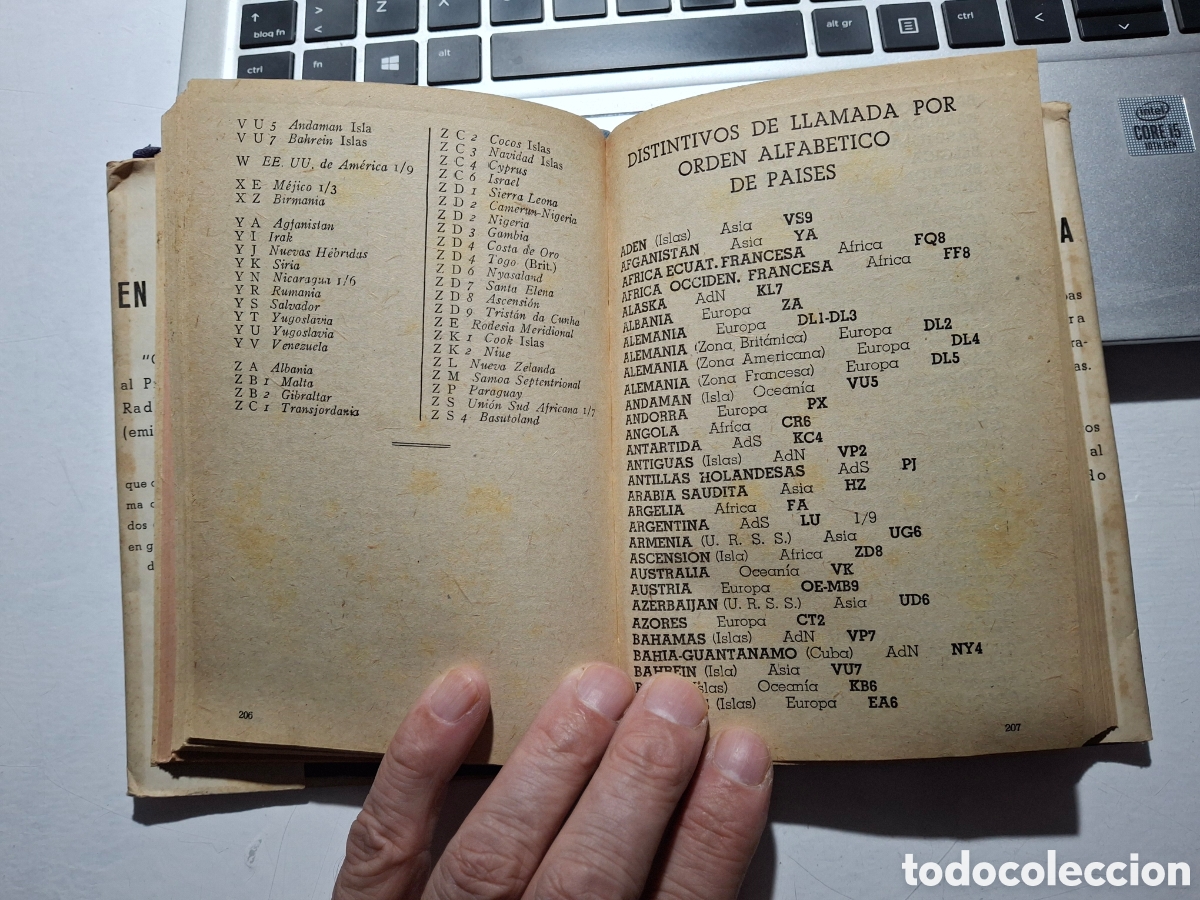 bloq fn
ctrl
fn
alt
Z
X
C
V
B
N
M
alt gr
ctrl
intel
CORE i5
10TH GEN
V U 5 Andaman Isla
V U 7 Bahrein Islas
W EE. UU, de América 1/9
X E Méjico 1/3
X Z Birmania
Y A Agfanistan
Y I Irak
Y J Nuevas Hébridas
Y K Siria
Y N Nicaragua 1/6
Y R Rumania
Y S Salvador
Y T Yugoslavia
Y U Yugoslavia
Y V Venezuela
Z A Albania
Z B 1 Malta
Z B 2 Gibraltar
Z C 1 Transjordania
Z C 2 Cocos Islas
Z C 3 Navidad Islas
Z C 4 Cyprus
Z C 6 Israel
Z D 1 Sierra Leona
Z D 2 Camerun-Nigeria
Z D 2 Nigeria
Z D 3 Gambia
Z D 4 Costa de Oro
Z D 4 Togo (Brit.)
Z D 6 Nyasaland
Z D 7 Santa Elena
Z D 8 Ascensión
Z D 9 Tristán da Cunha
Z E Rodesia Meridional
Z K 1 Cook Islas
Z K 2 Niue
Z L Nueva Zelanda
Z M Samoa Septentrional
Z P Paraguay
Z S Unión Sud Africana 1/7
Z S 4 Basutoland
206
DISTINTIVOS DE LLAMADA POR
ORDEN ALFABETICO
DE PAISES
ADEN (Islas) Asia VS9
AFGANISTAN Asia YA
AFRICA ECUAT. FRANCESA Africa FQ8
AFRICA OCCIDEN. FRANCESA Africa FF8
ALASKA AdN KL7
ALBANIA Europa ZA
ALEMANIA Europa DL1-DL3
ALEMANIA (Zona Británica) Europa DL2
ALEMANIA (Zona Americana) Europa DL4
ALEMANIA (Zona Francesa) Europa DL5
ANDAMAN (Isla) Oceanía VU5
ANDORRA Europa PX
ANGOLA Africa CR6
ANTARTIDA AdS KC4
ANTIGUAS (Islas) AdN VP2
ANTILLAS HOLANDESAS AdS PJ
ARABIA SAUDITA Asia HZ
ARGELIA Africa FA
ARGENTINA AdS LU 1/9
ARMENIA (U. R. S. S.) Asia UG6
ASCENSION (Isla) Africa ZD8
AUSTRALIA Oceanía VK
AUSTRIA Europa OE-MB9
AZERBAIJAN (U. R. S. S.) Asia UD6
AZORES Europa CT2
BAHAMAS (Islas) AdN VP7
BAHIA-GUANTANAMO (Cuba) AdN NY4
BAHREIN (Isla) Asia VU7
Islas) Oceanía KB6
(Islas) Europa EA6
207
EN
al
Rad
(emi
que
ma
dos
en g
d
A
pas
ra
ra-
as.
os
al
do
todocoleccion